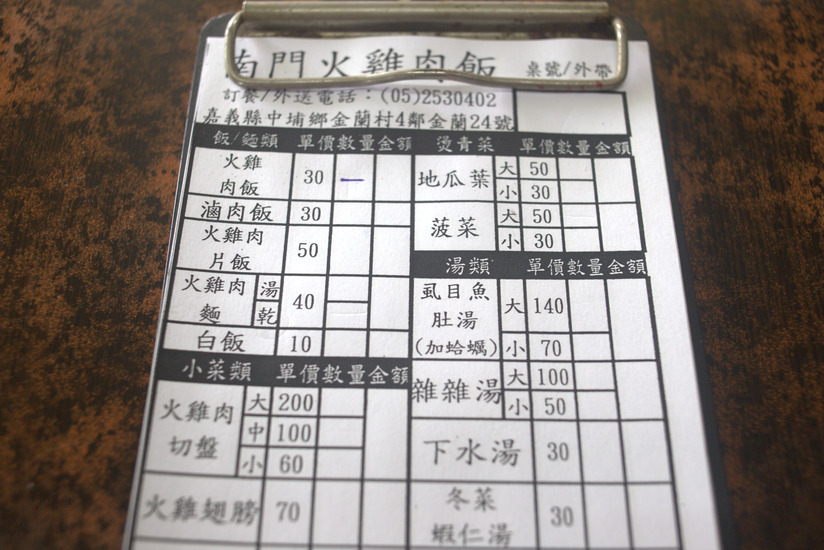 南門火雞肉飯 桌號/外帶
訂餐/外送電話:(05)2530402
嘉義縣中埔鄉金蘭村4鄰金蘭24號
飯/麵類 單價 數量 金額
火雞
肉飯 30 一
滷肉飯 30
火雞肉
片飯 50
火雞肉
麵 湯 乾 40
白飯 10
小菜類 單價 數量 金額
火雞肉
切盤 大 200
中 100
小 60
火雞翅膀 70
燙青菜 單價 數量 金額
地瓜葉 大 50
小 30
菠菜 大 50
小 30
湯類 單價 數量 金額
虱目魚
肚湯
(加蛤蠣) 大 140
小 70
雜雜湯 大 100
小 50
下水湯 30
冬菜
蝦仁湯 30